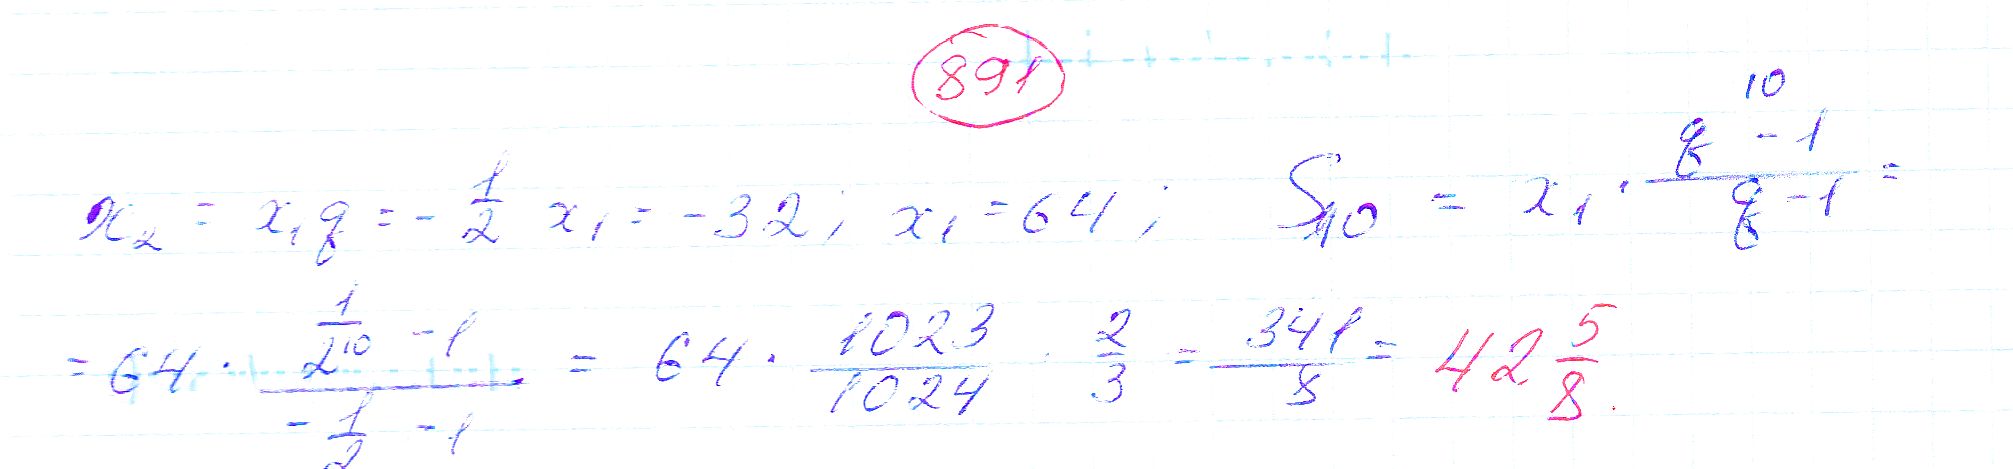 891
x₂ = x₁q = -1/2 x₁ = -32; x₁ = 64; S₁₀ = x₁ · (q¹⁰ - 1)/(q - 1) =
= 64 · (1/2¹⁰ - 1)/(-1/2 - 1) = 64 · 1023/1024 · 2/3 = 341/8 = 42 5/8.